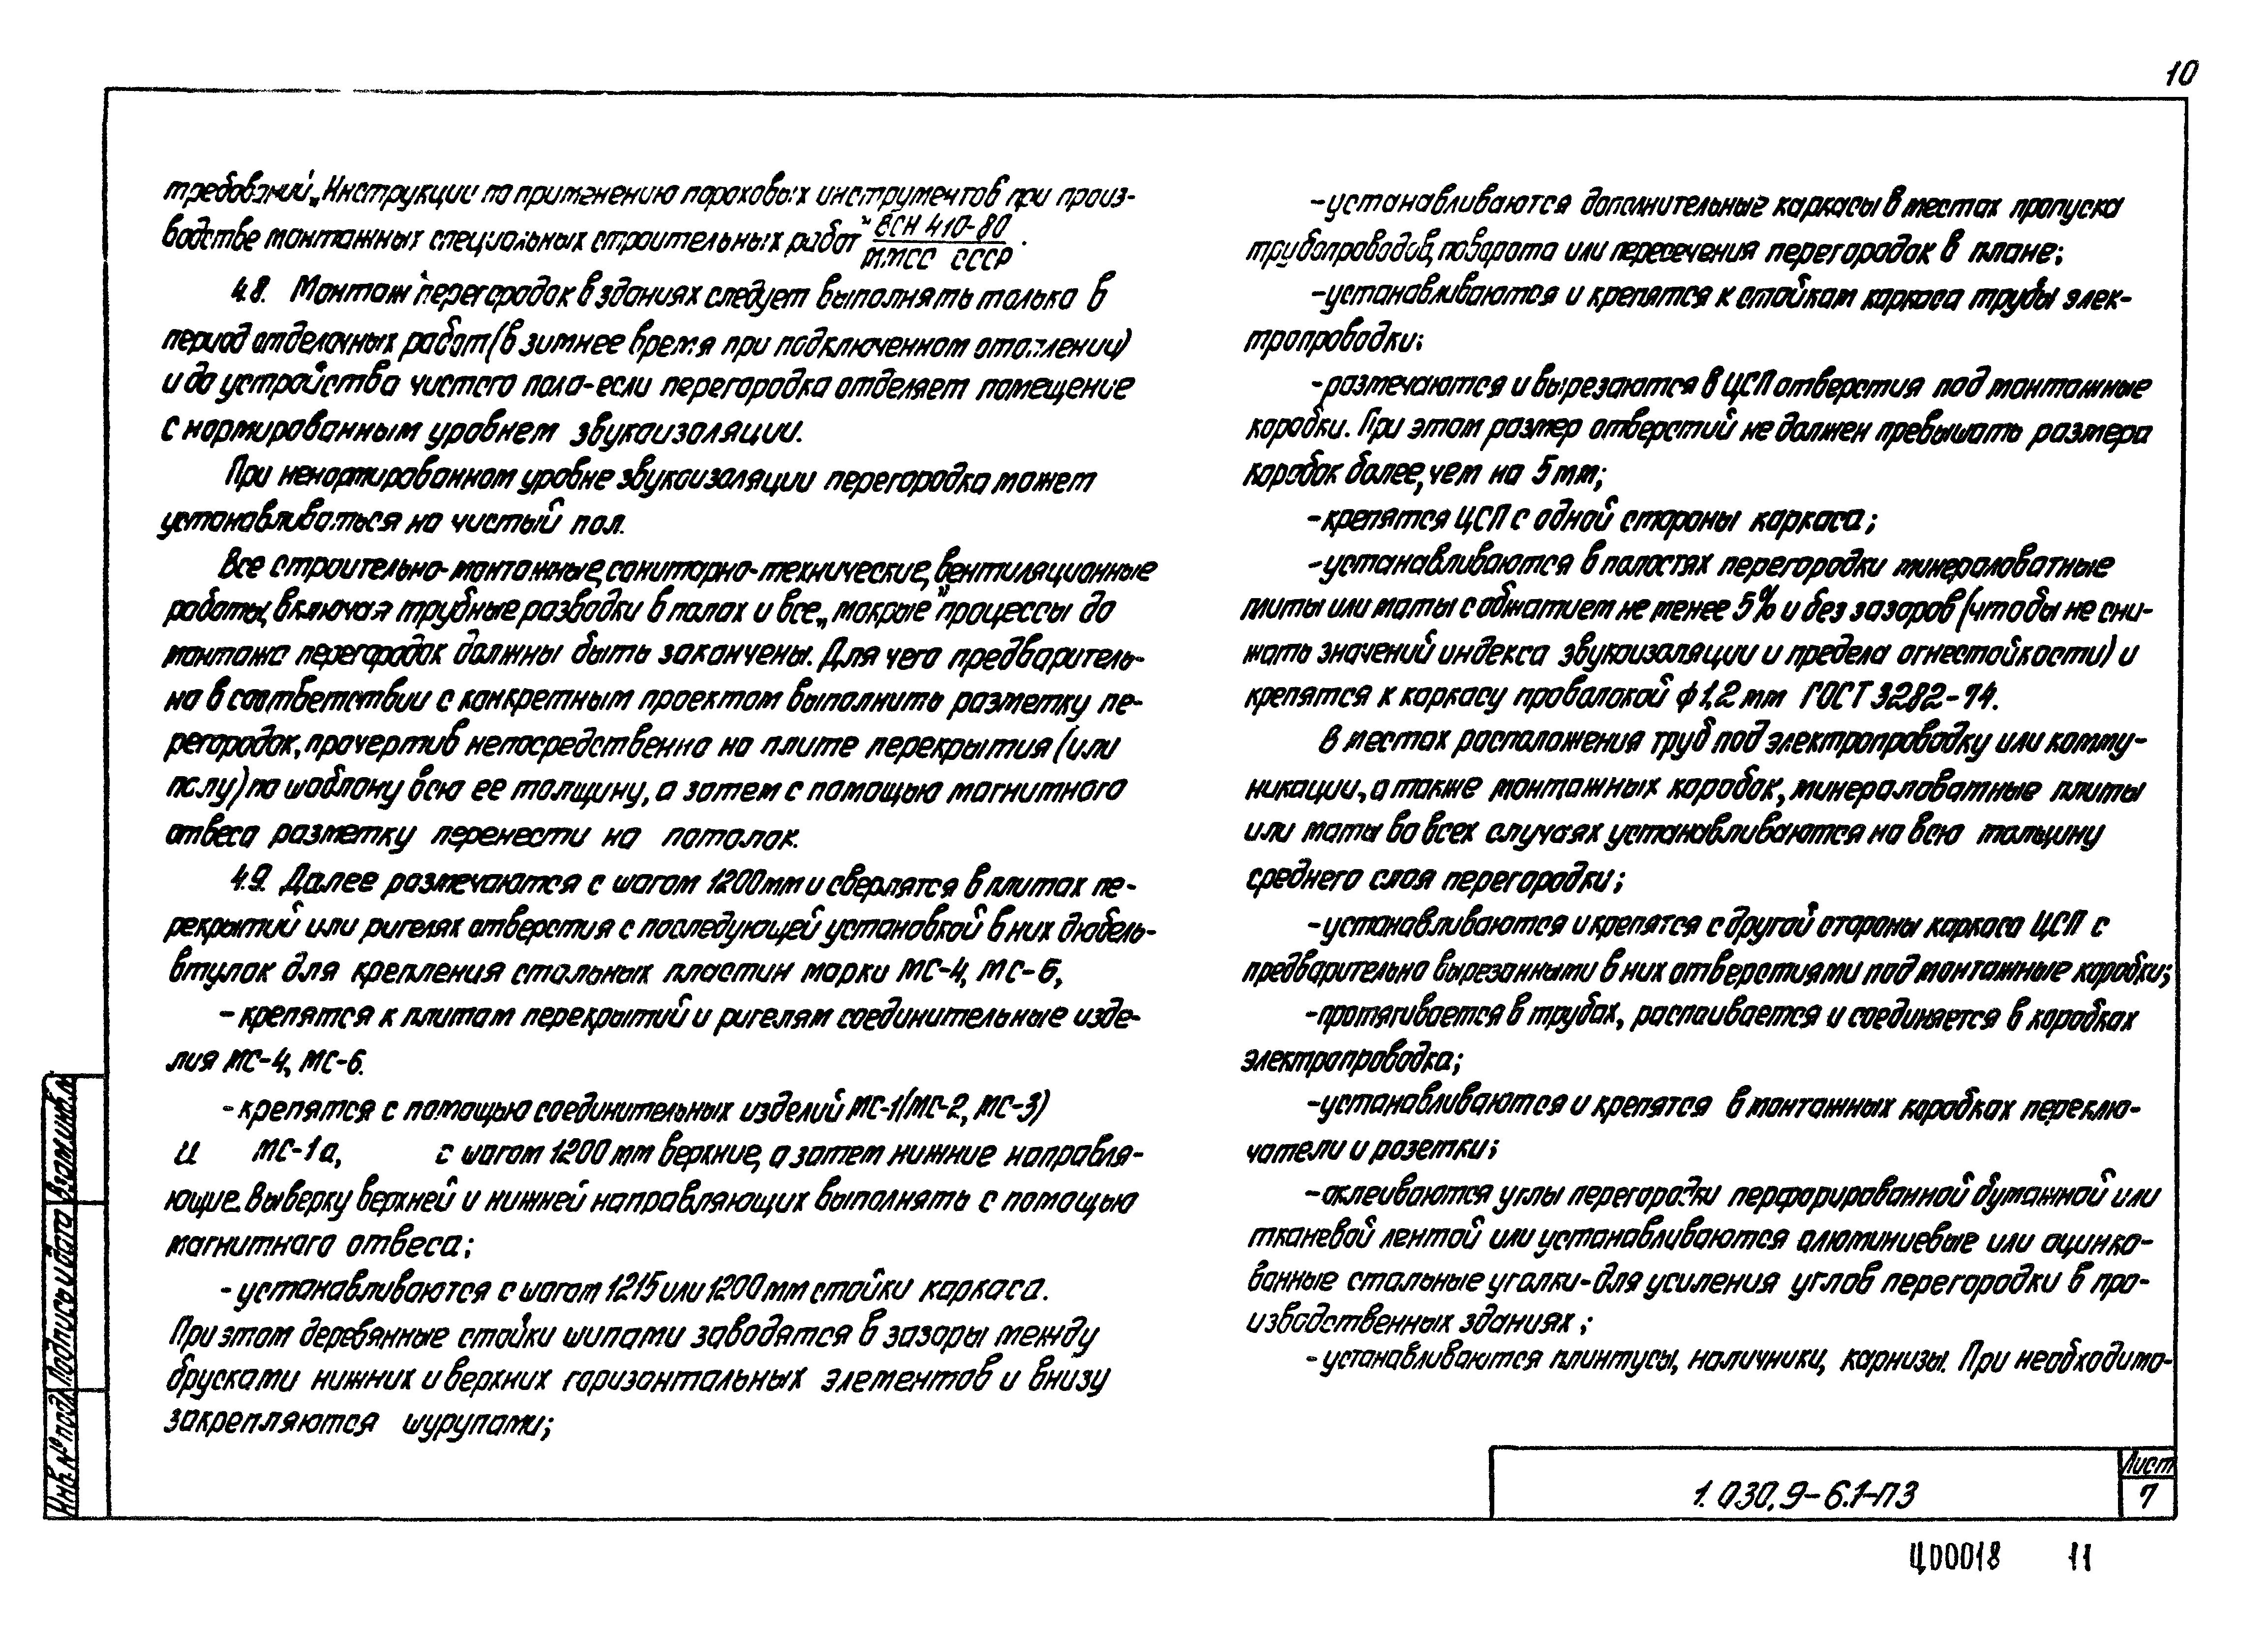 10
требований „Инструкции по применению пороховых инструментов при произ-
водстве монтажных специальных строительных работ" ВСН 410-80
ММСС СССР.
4.8. Монтаж перегородок в зданиях следует выполнять только в
период отделочных работ (в зимнее время при подключенном отоплении)
и до устройства чистого пола-если перегородка отделяет помещение
с нормированным уровнем звукоизоляции.
При ненормированном уровне звукоизоляции перегородка может
устанавливаться на чистый пол.
Все строительно-монтажные, санитарно-технические, вентиляционные
работы, включая трубные разводки в полах и все „мокрые" процессы до
монтажа перегородок должны быть закончены. Для чего предваритель-
но в соответствии с конкретным проектом выполнить разметку пе-
регородок, прочертив непосредственно на плите перекрытия (или
полу) по шаблону всю ее толщину, а затем с помощью магнитного
отвеса разметку перенести на потолок.
4.9. Далее размечаются с шагом 1200мм и сверлятся в плитах пе-
рекрытий или ригелях отверстия с последующей установкой в них дюбель-
втулок для крепления стальных пластин марки МС-4, МС-6,
- крепятся к плитам перекрытий и ригелям соединительные изде-
лия МС-4, МС-6.
- крепятся с помощью соединительных изделий МС-1(МС-2, МС-3)
и МС-1а, с шагом 1200 мм верхние, а затем нижние направля-
ющие. Выверку верхней и нижней направляющих выполнять с помощью
магнитного отвеса;
- устанавливаются с шагом 1215 или 1200 мм стойки каркаса.
При этом деревянные стойки шипами заводятся в зазоры между
брусками нижних и верхних горизонтальных элементов и внизу
закрепляются шурупами;
-устанавливаются дополнительные каркасы в местах пропуска
трубопроводов, поворота или пересечения перегородок в плане;
-устанавливаются и крепятся к стойкам каркаса трубы элек-
тропроводки;
-размечаются и вырезаются в ЦСП отверстия под монтажные
коробки. При этом размер отверстий не должен превышать размера
коробок более, чем на 5 мм;
-крепятся ЦСП с одной стороны каркаса;
-устанавливаются в полостях перегородки минераловатные
плиты или маты с обжатием не менее 5% и без зазоров (чтобы не сни-
жать значений индекса звукоизоляции и предела огнестойкости) и
крепятся к каркасу проволокой ф 1,2 мм ГОСТ 3282-74.
В местах расположения труб под электропроводку или комму-
никации, а также монтажных коробок, минераловатные плиты
или маты во всех случаях устанавливаются на всю толщину
среднего слоя перегородки;
-устанавливаются и крепятся с другой стороны каркаса ЦСП с
предварительно вырезанными в них отверстиями под монтажные коробки;
-протягивается в трубах, распаивается и соединяется в коробках
электропроводка;
-устанавливаются и крепятся в монтажных коробках переклю-
чатели и розетки;
-оклеиваются углы перегородки перфорированной бумажной или
тканевой лентой или устанавливаются алюминиевые или оцинко-
ванные стальные уголки-для усиления углов перегородки в про-
изводственных зданиях;
-устанавливаются плинтусы, наличники, карнизы. При необходимо-
Инв. № подл. Подпись и дата Взам.инв.№
1.030.9-6.1-ПЗ
Лист
7
Ц00018 11